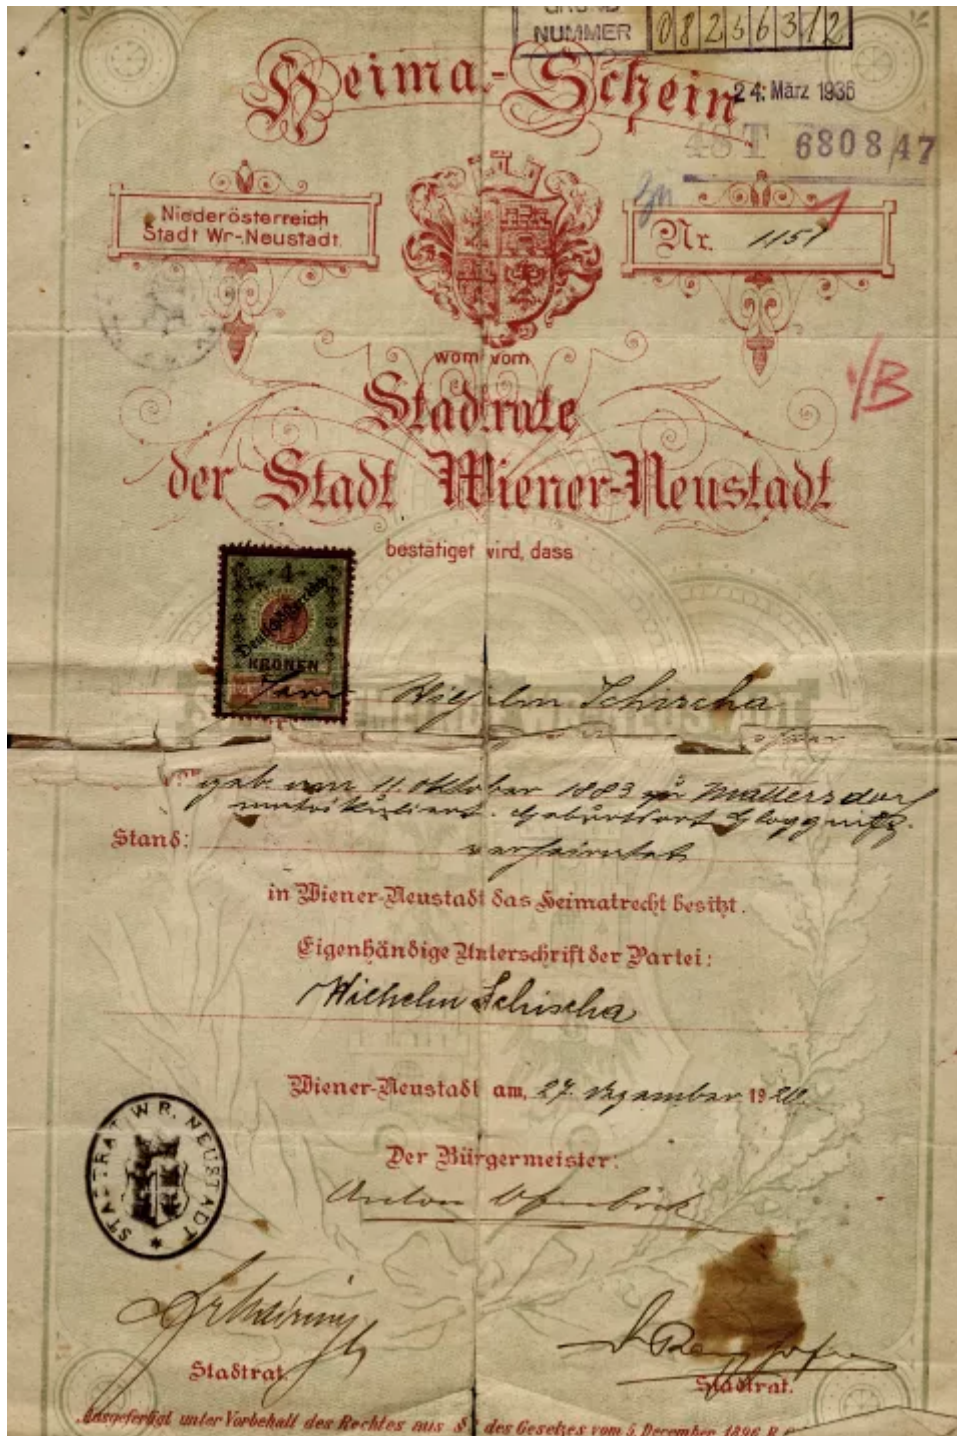 GRUND
NUMMER 08256312
Heima-Schein
24. März 1936
48 T 6808/47
Zu
Niederösterreich
Stadt Wr.-Neustadt.
Nr. 1151
1/B
wom vom
Stadtrate
der Stadt Wiener-Neustadt
bestätiget wird, dass
4
Deutschösterreich
KRONEN
Herr Wilhelm Schischa
geb. am 11. Oktober 1883 zu Mattersdorf
matrikuliert. Geburtsort Gloggnitz.
Stand: verheiratet
in Wiener-Neustadt das Heimatrecht besitzt.
Eigenhändige Unterschrift der Partei:
Wilhelm Schischa
Wiener-Neustadt am, 27. Dezember 1920.
STADTRAT WR. NEUSTADT
Der Bürgermeister:
Anton Ofenböck
Stadtrat.
Stadtrat.
Ausgefertigt unter Vorbehalt des Rechtes aus § des Gesetzes vom 5. Dezember 1896 R